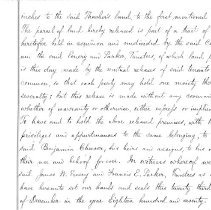 to the said Thacher's land, to the first mentioned
The parcel of land hereby released is part of a tract of
heretofore held in common and undivided, by the said
and the said Emery and Parker, Trustees, of which land
is this day made by the mutual release of said tenants
common, so that each party may hold one moiety
severalty; but this release is made without any
whether of warranty or otherwise, either express or implied
To have and to hold the above released premises, with
privileges and appurtenances to the same belonging, to
said Benjamin his heirs and assigns, to
their use and behoof forever. In witness whereof we
said James W. Emery and Francis E. Parker, Trustees as
have hereunto set our hands and seals this twenty third
of December in the year Eighteen hundred and seventy